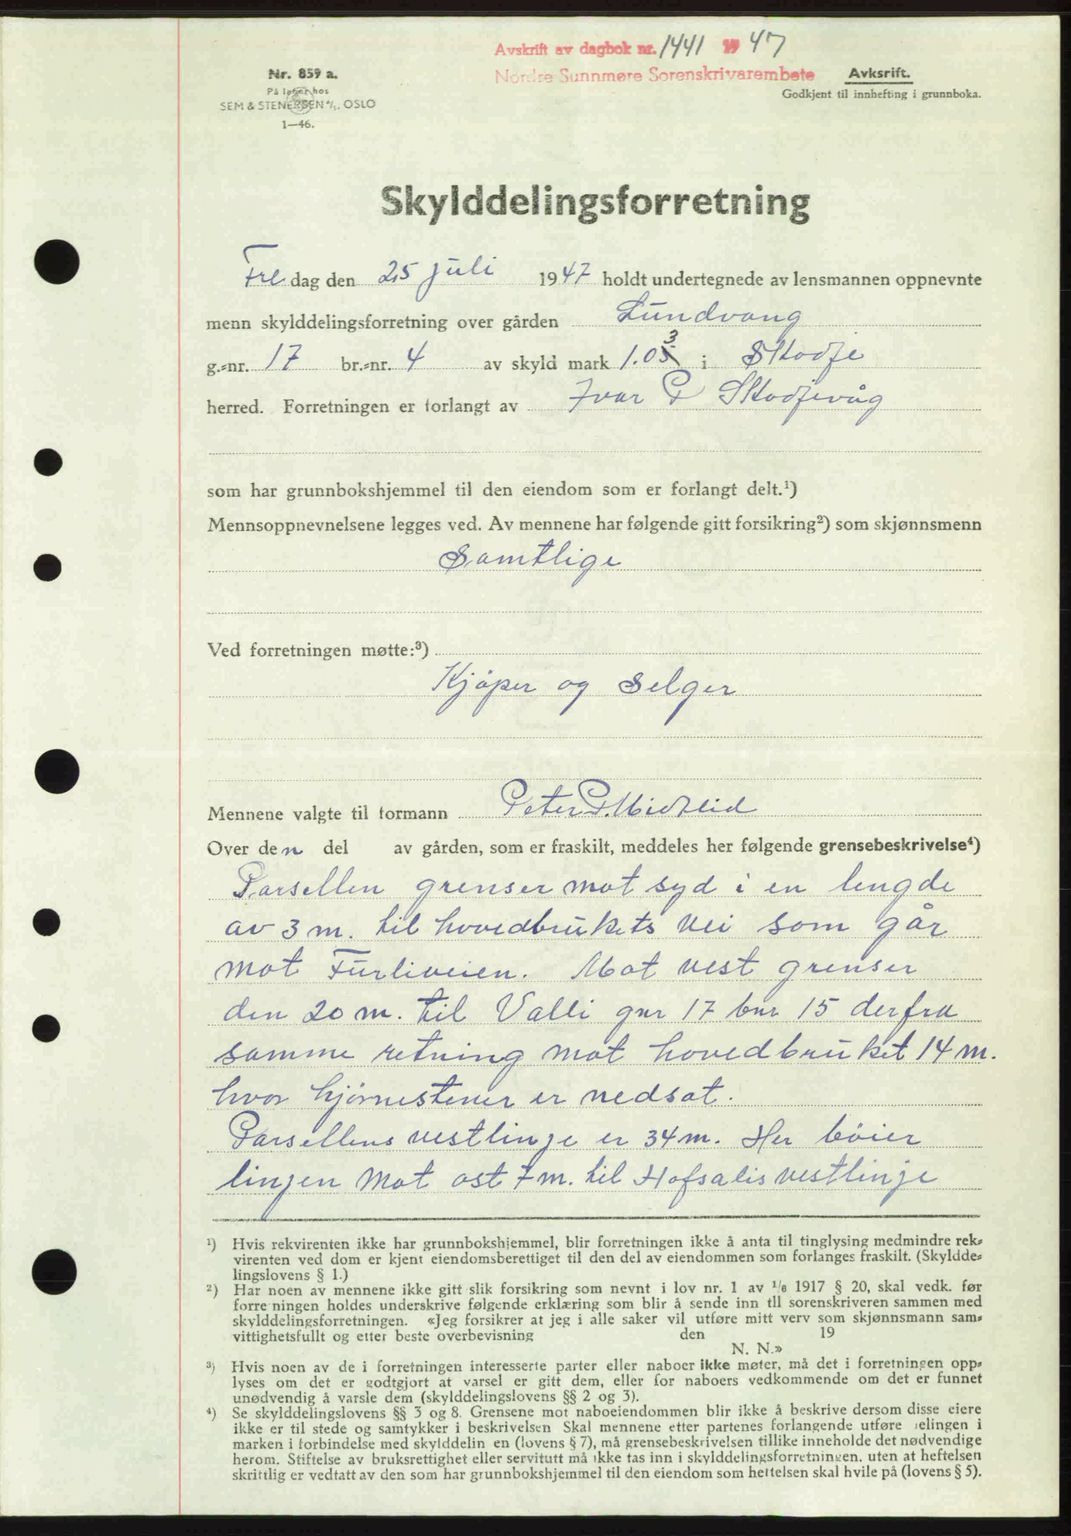 Avskrift av dagbok nr. 1441 1947
Nordre Sunnmøre Sorenskrivarembete
Avksrift.
Godkjent til innhefting i grunnboka.
Nr. 859 a.
På lager hos
SEM & STENERSEN A/S. OSLO
1—46.
Skylddelingsforretning
Fre dag den 25 juli 1947 holdt undertegnede av lensmannen oppnevnte
menn skylddelingsforretning over gården Lundvang
g.-nr. 17 br.-nr. 4 av skyld mark 1.03 i Skodje
herred. Forretningen er forlangt av Ivar P Skodjevåg
som har grunnbokshjemmel til den eiendom som er forlangt delt.¹)
Mennsoppnevnelsene legges ved. Av mennene har følgende gitt forsikring²) som skjønnsmenn
Samtlige
Ved forretningen møtte:³)
Kjøper og Selger
Mennene valgte til formann Peter P. Midtlid
Over den del av gården, som er fraskilt, meddeles her følgende grensebeskrivelse⁴)
Parsellen grenser mot syd i en lengde
av 3 m. til hovedbrukets vei som går
mot Furliveien. Mot vest grenser
den 20 m. til Valli gnr 17 bnr 15 derfra
samme retning mot hovedbruket 14 m.
hvor hjørnestener er nedsat.
Parsellens vestlinje er 34 m. Her bøier
linjen mot ost 7 m. til Hofsalis vestlinje
¹) Hvis rekvirenten ikke har grunnbokshjemmel, blir forretningen ikke å anta til tinglysing medmindre rek-
virenten ved dom er kjent eiendomsberettiget til den del av eiendommen som forlanges fraskilt. (Skyldde-
lingslovens § 1.)
²) Har noen av mennene ikke gitt slik forsikring som nevnt i lov nr. 1 av 1/6 1917 § 20, skal vedk. før
forre ningen holdes underskrive følgende erklæring som blir å sende inn til sorenskriveren sammen med
skylddelingsforretningen. «Jeg forsikrer at jeg i alle saker vil utføre mitt verv som skjønnsmann sam-
vittighetsfullt og etter beste overbevisning den 19
N. N.»
³) Hvis noen av de i forretningen interesserte parter eller naboer ikke møter, må det i forretningen opp-
lyses om det er godtgjort at varsel er gitt dem, eller for naboers vedkommende om det er funnet
unødvendig å varsle dem (skylddelingslovens §§ 2 og 3).
⁴) Se skylddelingslovens §§ 3 og 8. Grensene mot naboeiendommen blir ikke å beskrive dersom disse eiere
ikke er til stede og samtykker i beskrivelsen Skal mennene etter partenes forlangende utføre delingen i
marken i forbindelse med skylddelin en (lovens § 7), må grensebeskrivelsen tillike inneholde det nødvendige
herom. Stiftelse av bruksrettighet eller servitutt må ikke tas inn i skylddelingsforretningen. uten at heftelsen
skriftlig er vedtatt av den som har grunnbokshjemmel til den eiendom som heftelsen skal hvile på (lovens § 5).